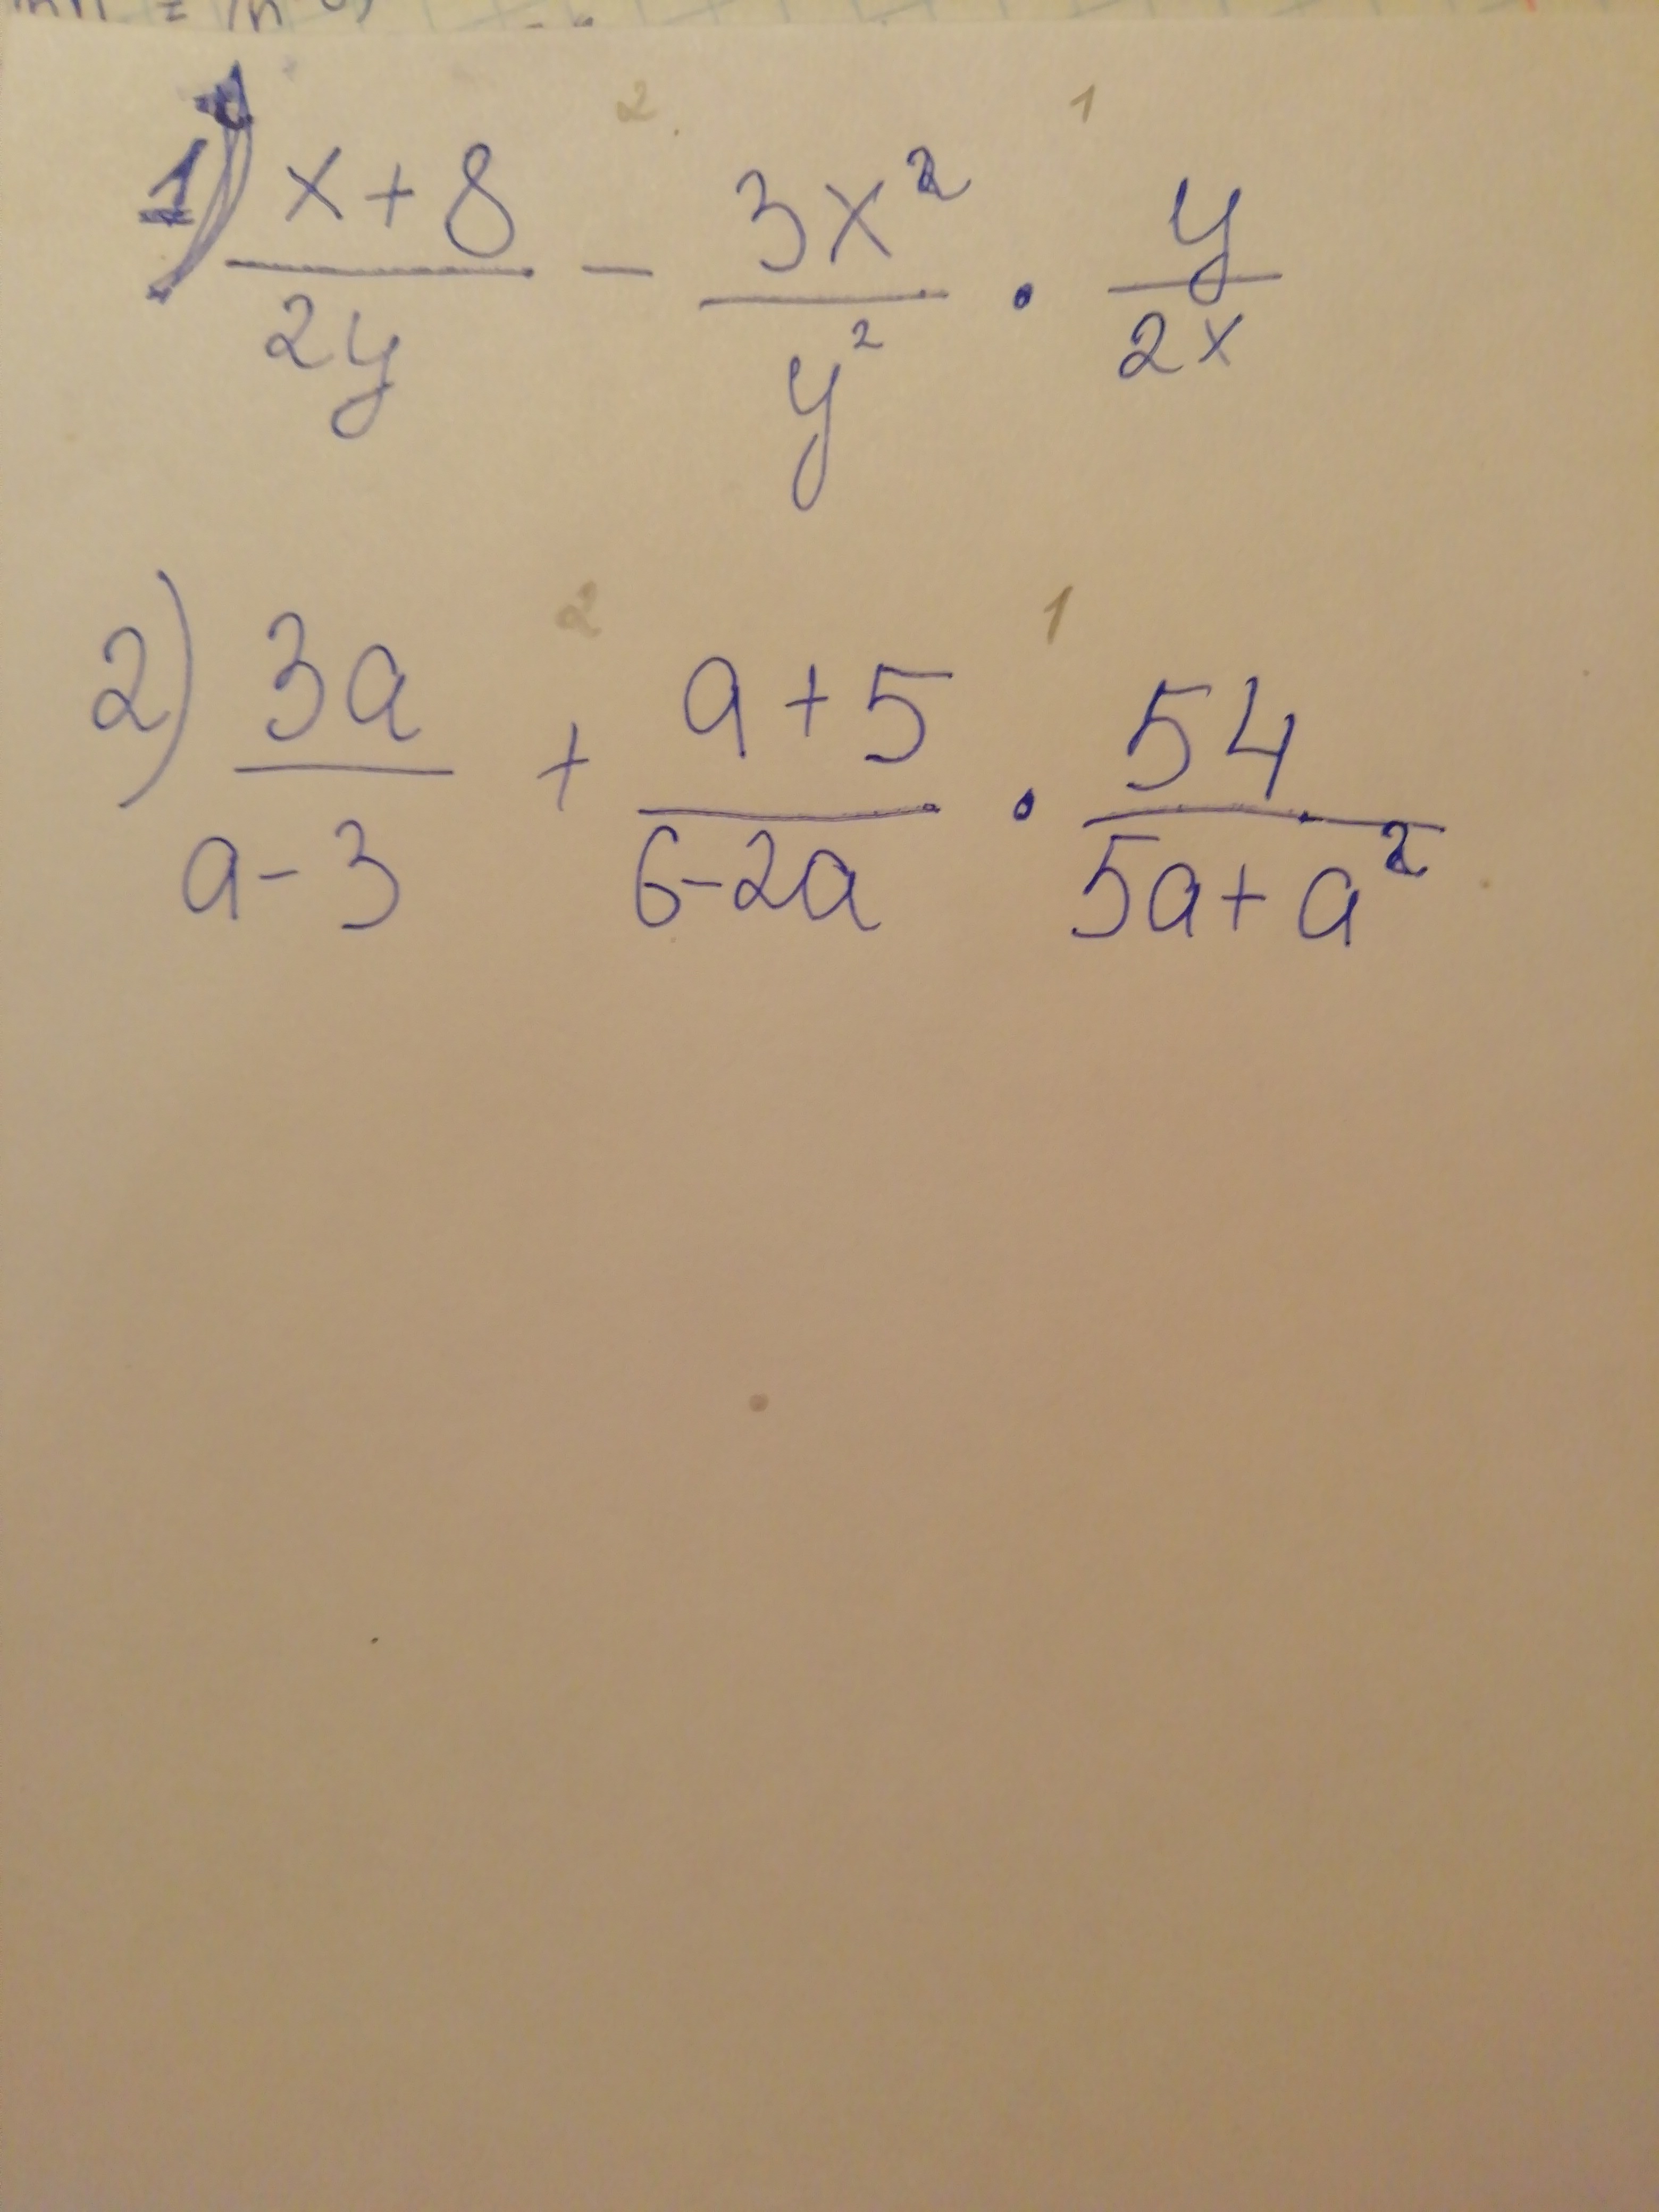 2 1
1) x+8/2y - 3x²/y² · y/2x
2 1
2) 3a/a-3 + a+5/6-2a · 54/5a+a²